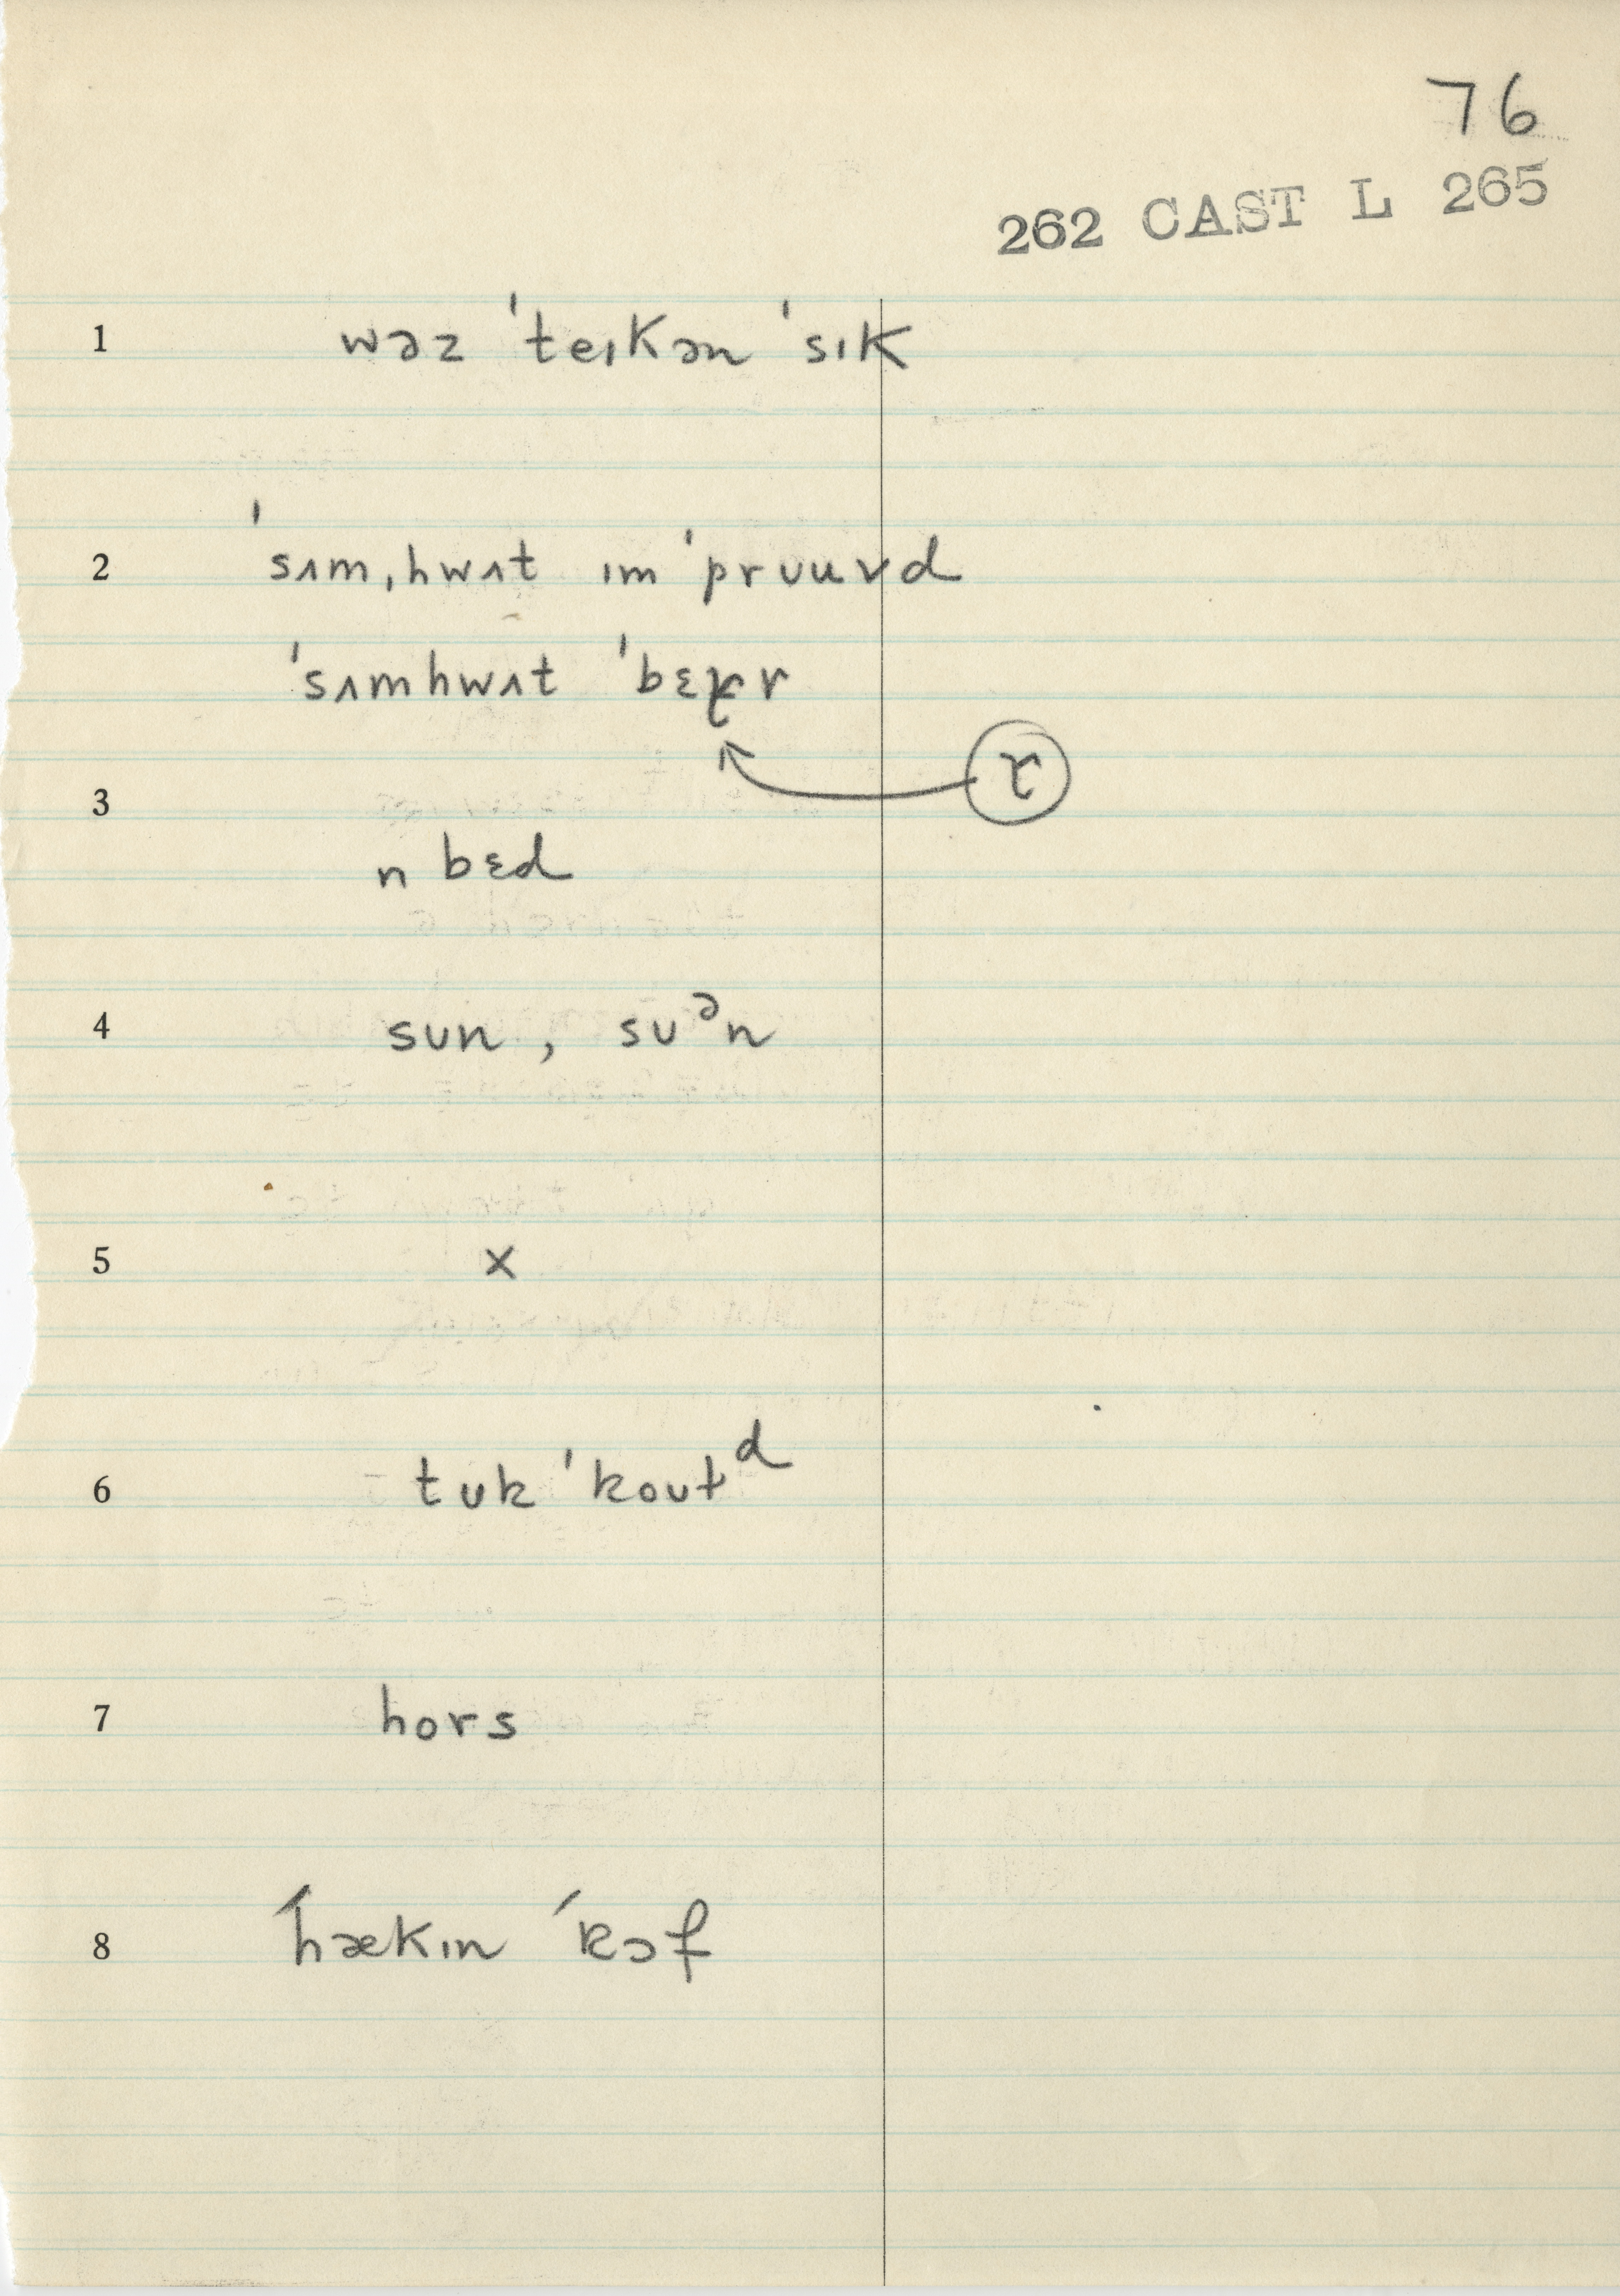 76
262 CAST L 265
1 wəz ˈteɪkən ˈsɪk
2 ˈsʌmˌhwʌt ɪmˈprʊuvd
ˈsʌmhwʌt ˈbɛɽr
ɽ
3
n bɛd
4 sʊn, sʊᵊn
5 x
6 tʊk ˈkoʊtᵈ
7 hors
8 ˊhækɪn ˊkɔf